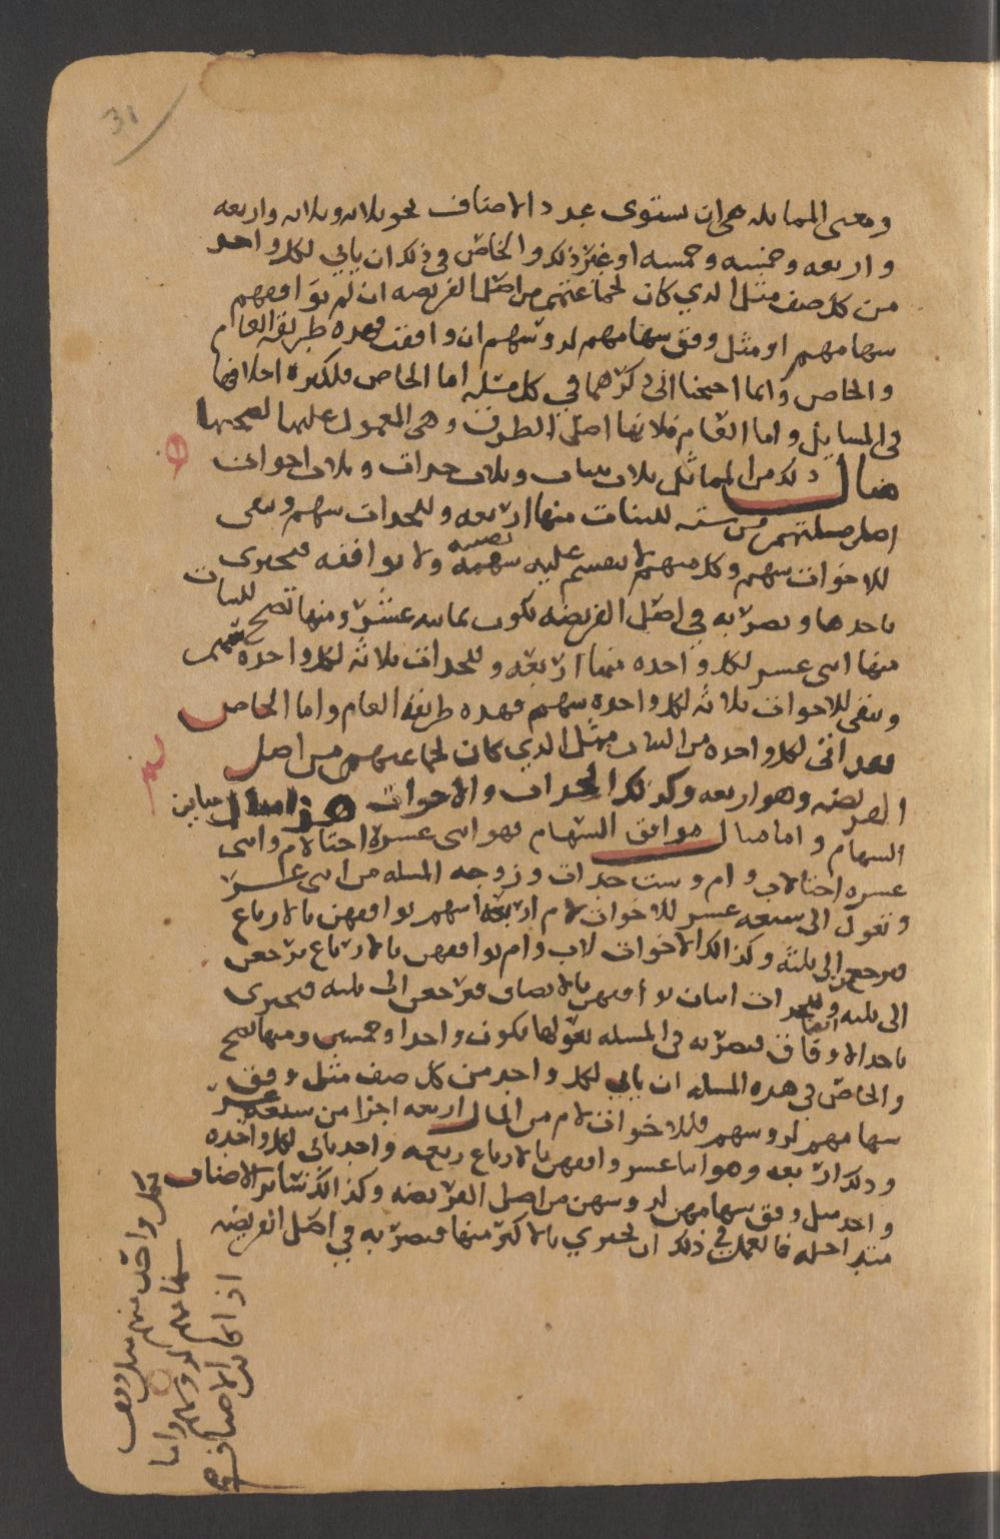 31
ومعنى المماثله هى ان يستوى عدد الاصناف نحو ثلاثه وثلاثه واربعه
واربعه وخمسه وخمسه او غير ذلك والخاص في ذلك ان ياتي لكل واحد
من كل صنف مثل الذي كان لجماعتهم من اصل الفريضه ان لم توافقهم
سهامهم او مثل وفق سهامهم لروسهم ان وافقت فهده طريقه العام
والخاص وانما احتجنا الى ذكرهما في كل مسله اما الخاص فلكثرة اختلافها
في المسايل واما العام فلانها اصل الطرق وهي المعمول عليها لصحتها
مثال ذلك من المماثل ثلاث بنات وثلاث جدات وثلاث اخوات
اصل مسلتهم من سته للبنات منها اربعه وللجدات سهم وبقى
للاخوات سهم وكل منهم لا ينقسم عليه نصيبه ولا يوافقه فتجتزى
باحدها وتضربه في اصل الفريضه تكون ثمانيه عشر ومنها تصح للبنات
منها اثنى عشر لكل واحده منها اربعه وللجدات ثلاثه لكل واحده سهم
وبقى للاخوات ثلاثه لكل واحدة سهم فهده طريقة العام واما الخاص
فقد اتى لكل واحده من البنات مثل الذي كان لجماعتهم من اصل
الفريضه وهو اربعه وكذلك الجدات والاخوات هذا مثال مباين
السهام واما مثال موافق السهام فهو اثنى عشرة اختا لام واثنى
عشره اختا لاب وام وست جدات وزوجه المسله من اثنى عشر
وتعول الى سبعه عشر للاخوات لام اربعة اسهم توافقهن بالارباع
فترجع الى ثلثه وكذالك الاخوات لاب وام توافقهن بالارباع ترجعن
الى ثلثه وللجدات ايضا اثنان توافقهن بالانصاف فترجعن الى ثلثه فتجتزى
باحد الاوفاق فتضربه في المسله بعولها يكون واحدا وخمسين ومنها تصح
والخاص في هده المسله ان ياتي لكل واحد من كل صنف مثل وفق
سهامهم لروسهم فللاخوات لام من المال اربعه اجزا من سبعه عشر
وذلك اربعه وهو اثنا عشر وافقهن بالارباع ربعه واحد ياتي لكل واحده
واحد مثل وفق سهامهن لروسهن من اصل الفريضه وكذالك سائر الاصناف
متداخله فالعمل في ذلك ان تجتزي بالاكثر منها فتضربه في اصل الفريضه
لكل واحد منهم مثل وفق
سهامهم لروسهم واما
اذا كانت الاصناف